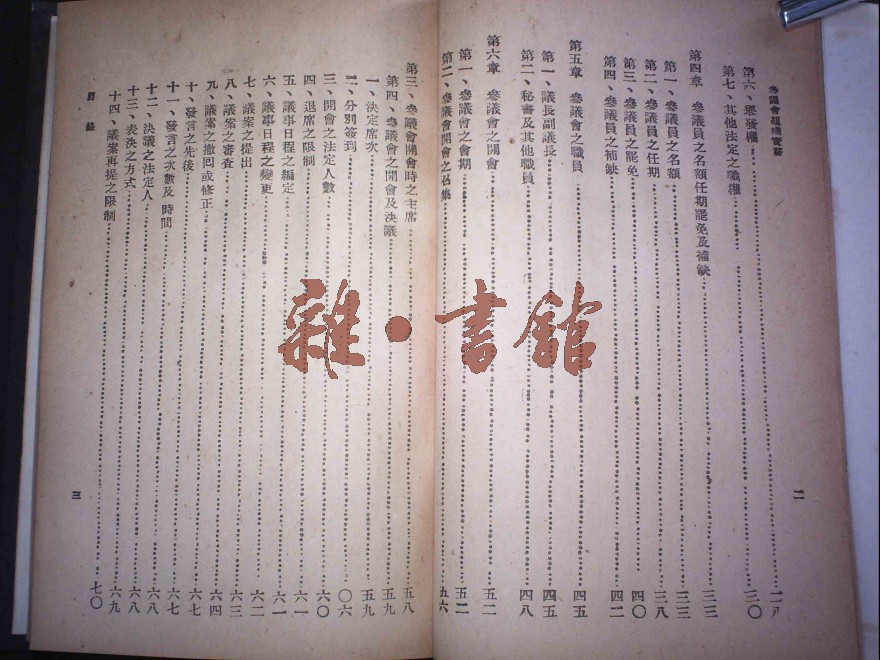 第六、舉發權……二八
第七、其他法定之職權……三〇
第四章　參議員之名額任期罷免及補缺……三三
第一、參議員之名額……三三
第二、參議員之任期……三八
第三、參議員之罷免……四〇
第四、參議員之補缺……四二
第五章　參議會之職員……四五
第一、議長副議長……四五
第二、秘書及其他職員……四八
第六章　參議會之開會……五二
第一、參議會之會期……五二
第二、參議會開會之召集……五六
二
第三、參議會開會時之主席……五八
第四、參議會之開會及決議……五九
一、決定席次……五九
二、分別簽到……〇六
三、開會之法定人數……六〇
四、退席之限制……六一
五、議事日程之編定……六一
六、議事日程之變更……六二
七、議案之提出……六三
八、議案之審查……六四
九、議案之撤回或修正……六七
十、發言之先後……六七
十一、發言之次數及時間……六八
十二、決議之法定人……六八
十三、表決之方式……六九
十四、議案再提之限制……七〇
目錄
三
雜・書館